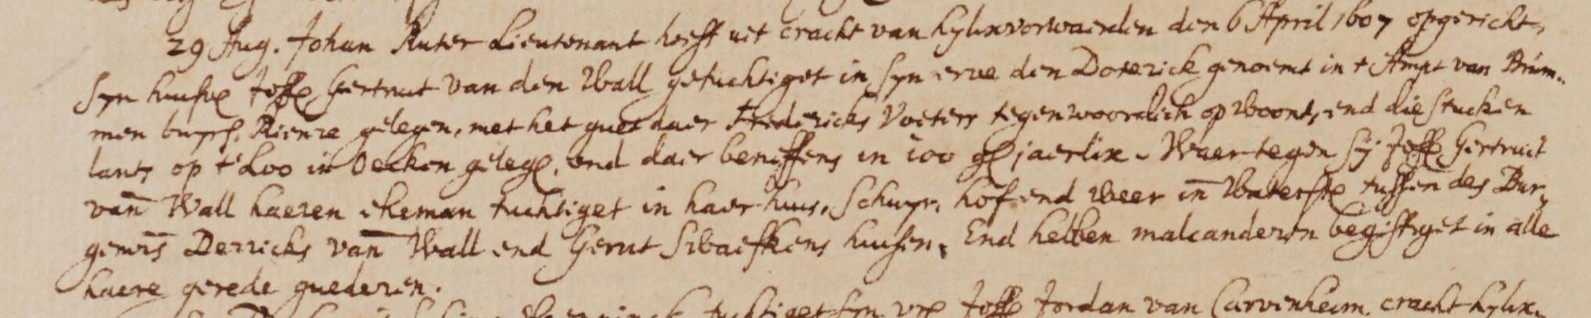 29 Aug. Johan Ruter Lieutenant heeft uit cracht van hylixvorwaerden den 6 April 1607 opgericht,
Syn huisfr Joffr Gertruit van den Wall getuchtiget in syn erve den Doterick genoemt in t Ampt van Brum-
men buyrs. Rienre gelegen, met het guet daer Fredericks Voeterr tegenwoordich op woont, end die stucken
lants op t' Loo in Oeeken geleg, end daer beneffens in 100 gl jaerlix. Waer tegen sy Joffr Gertruit
van Wall haeren eheman tuchtiget in haer huis, Schuyr, hof end weer in Waterstr tussen des Bur-
gemrs Derricks van Wall end Gerrit huisen. End hebben malcanderen begiftiget in alle
haere gerede guederen.
tuchtiget syn Joffr Jordan van Carvenheim, cracht hylix-